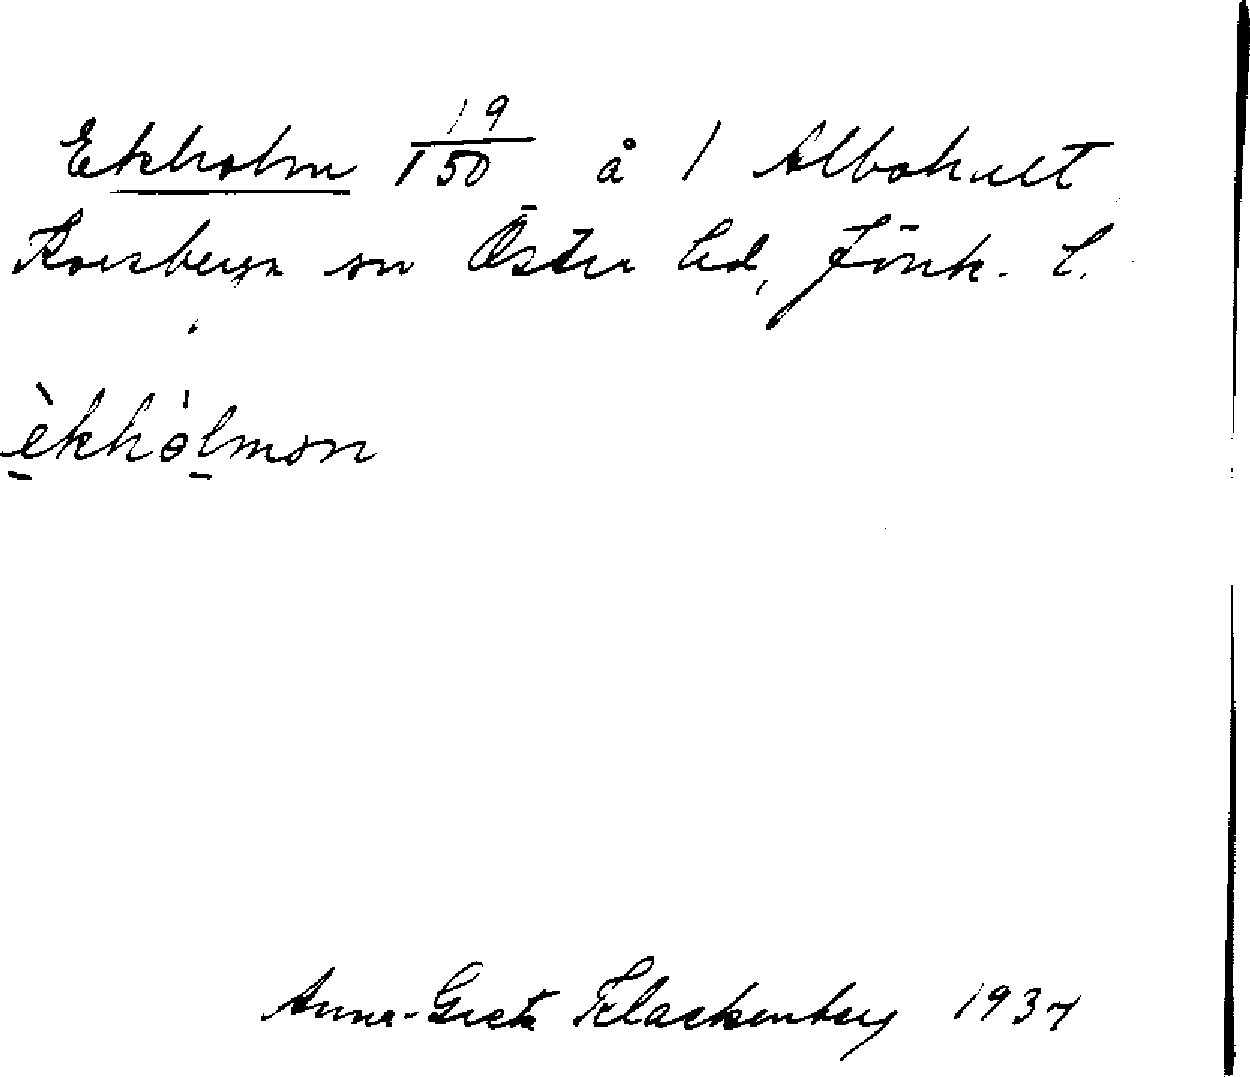 Ekholm 19/150 å 1 Albohult
Korsberga sn Östra hd, Jönk. l.
èkhòlmən
Anna-Greta Klackenberg 1934